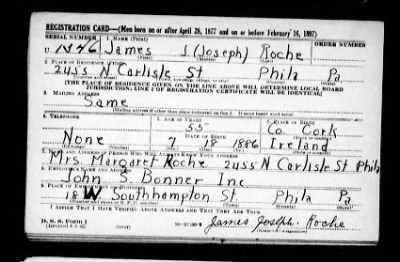 REGISTRATION CARD—(Men born on or after April 28, 1877 and on or before February 16, 1897)
SERIAL NUMBER 1. NAME (Print) ORDER NUMBER
U 1846 James J (Joseph) Roche
2. PLACE OF RESIDENCE (Print)
2455 N Carlisle St Phila Pa
[THE PLACE OF RESIDENCE GIVEN ON THE LINE ABOVE WILL DETERMINE LOCAL BOARD
JURISDICTION; LINE 2 OF REGISTRATION CERTIFICATE WILL BE IDENTICAL]
3. MAILING ADDRESS
Same
4. TELEPHONE 5. AGE IN YEARS 6. PLACE OF BIRTH
55 Co. Cork
DATE OF BIRTH
None 7 18 1886 Ireland
7. NAME AND ADDRESS OF PERSON WHO WILL ALWAYS KNOW YOUR ADDRESS
Mrs. Margaret Roche 2455 N Carlisle St Phila
8. EMPLOYER'S NAME AND ADDRESS
John S. Bonner Inc
9. PLACE OF EMPLOYMENT OR BUSINESS
18 W Southhampton St Phila Pa
I AFFIRM THAT I HAVE VERIFIED ABOVE ANSWERS AND THAT THEY ARE TRUE.
D. S. S. Form 1
James Joseph Roche